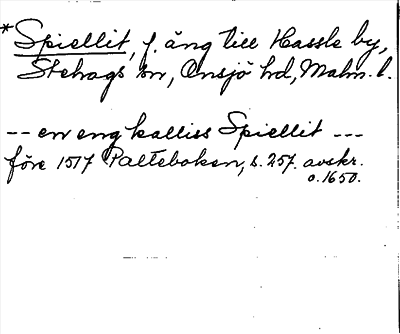 *Spiellit, f. äng till Hassle by,
Stehags sn, Onsjö hd, Malm. l.
-- en eng kalliss Spiellit ---
före 1517 Palteboken, s. 257. avskr.
o. 1650.